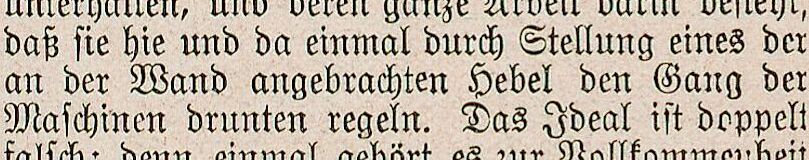 unterhalten, und deren ganze Arbeit darin besteht,
daß sie hie und da einmal durch Stellung eines der
an der Wand angebrachten Hebel den Gang der
Maschinen drunten regeln. Das Ideal ist doppelt
falsch: denn einmal gehört es zur Vollkommenheit